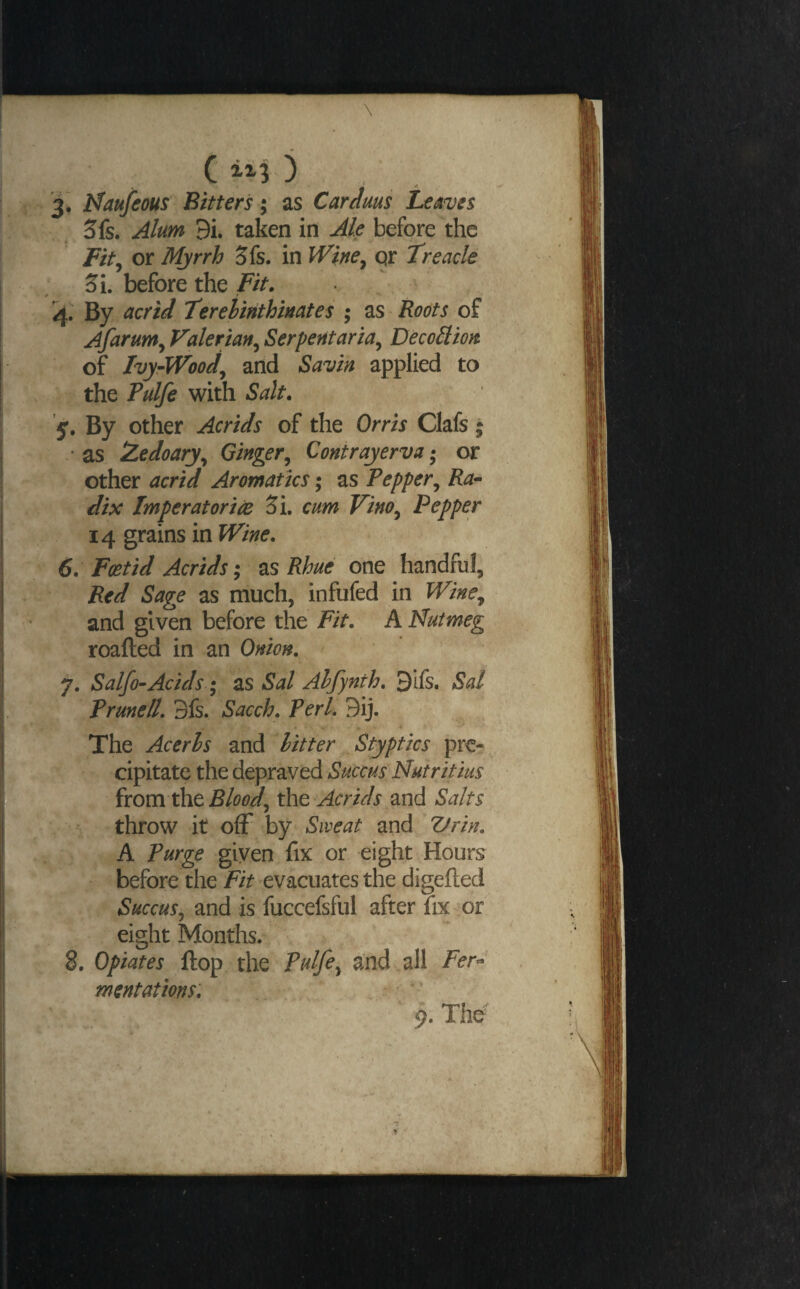 ( 223 )
3. Nauſeous Bitters ; as Carduus Leaves
ʒſs. Alum ℈i. taken in Ale before the
Fit, or Myrrh ʒſs. in Wine, or Treacle
ʒi. before the Fit.
4. By acrid Terebinthinates ; as Roots of
Aſarum, Valerian, Serpentaria, Decoction
of Ivy-Wood, and Savin applied to
the Pulſe with Salt.
5. By other Acrids of the Orris Claſs ;
as Zedoary, Ginger, Contrayerva ; or
other acrid Aromatics ; as Pepper, Ra-
dix Imperatoriæ ʒi. cum Vino, Pepper
14 grains in Wine.
6. Fœtid Acrids ; as Rhue one handful,
Red Sage as much, infuſed in Wine,
and given before the Fit. A Nutmeg
roaſted in an Onion.
7. Salſo-Acids ; as Sal Abſynth. ℈iſs. Sal
Prunell. ℈ſs. Sacch. Perl. ℈ij.
The Acerbs and bitter Styptics pre-
cipitate the depraved Succus Nutritius
from the Blood, the Acrids and Salts
throw it off by Sweat and Urin.
A Purge given ſix or eight Hours
before the Fit evacuates the digeſted
Succus, and is ſucceſsful after ſix or
eight Months.
8. Opiates ſtop the Pulſe, and all Fer-
mentations.
9. The